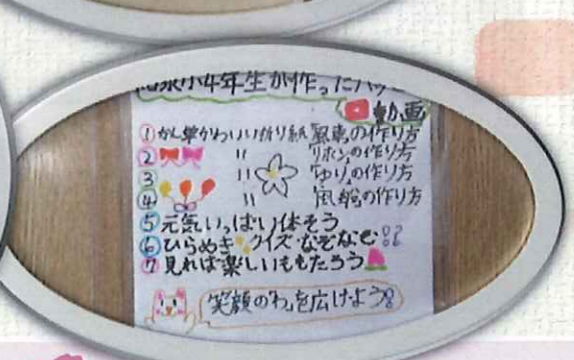 和泉小4年生が作ったハッピー
動画
①かん単かわいい折り紙「風車」の作り方
② 〃 「リボン」の作り方
③ 〃 「ゆり」の作り方
④ 〃 「風船」の作り方
⑤元気いっぱい体そう
⑥ひらめき クイズ・なぞなぞ!?
⑦見れば楽しいももたろう
笑顔の「わ」を広げよう!